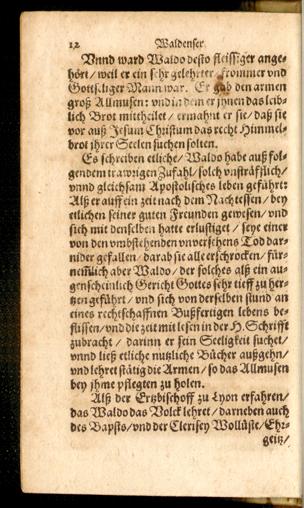 12 Waldenser
Vnnd ward Waldo desto fleissiger ange-
hört / weil er ein sehr gelehrter / frommer vnd
Gottseliger Mann war. Er gab den armen
groß Allmusen: vnd in dem er jhnen das leib-
lich Brot mittheilet / ermahnt er sie / daß sie
vor auß Jesum Christum das recht Himmel-
brot jhrer Seelen suchen solten.
Es schreiben etliche / Waldo habe auß fol-
gendem trawrigen Zufahl / solch vnsträfflich /
vnnd gleichsam Apostolisches leben geführt:
Alß er auff ein zeit nach dem Nachtessen / bey
etlichen seiner guten Freunden gewesen / vnd
sich mit denselben hatte erlustiget / seye einer
von den vmbstehenden vnversehens Tod dar-
nider gefallen / darab sie alle erschrocken / für-
nemlich aber Waldo / der solches alß ein au-
genscheinlich Gericht Gottes sehr tieff zu her-
tzen geführt / vnd sich von derselben stund an
eines rechtschaffnen Bußfertigen lebens be-
flissen / vnd die zeit mit lesen in der H. Schrifft
zubracht / darinn er sein Seeligkeit suchet /
vnnd ließ etliche nutzliche Bücher außgehn /
vnd lehret stätig die Armen / so das Allmusen
bey jhme pflegten zu holen.
Alß der Ertzbischoff zu Lyon erfahren /
das Waldo das Volck lehret / darneben auch
des Bapsts / vnd der Clerisey Wollüste / Ehr-
geitz /